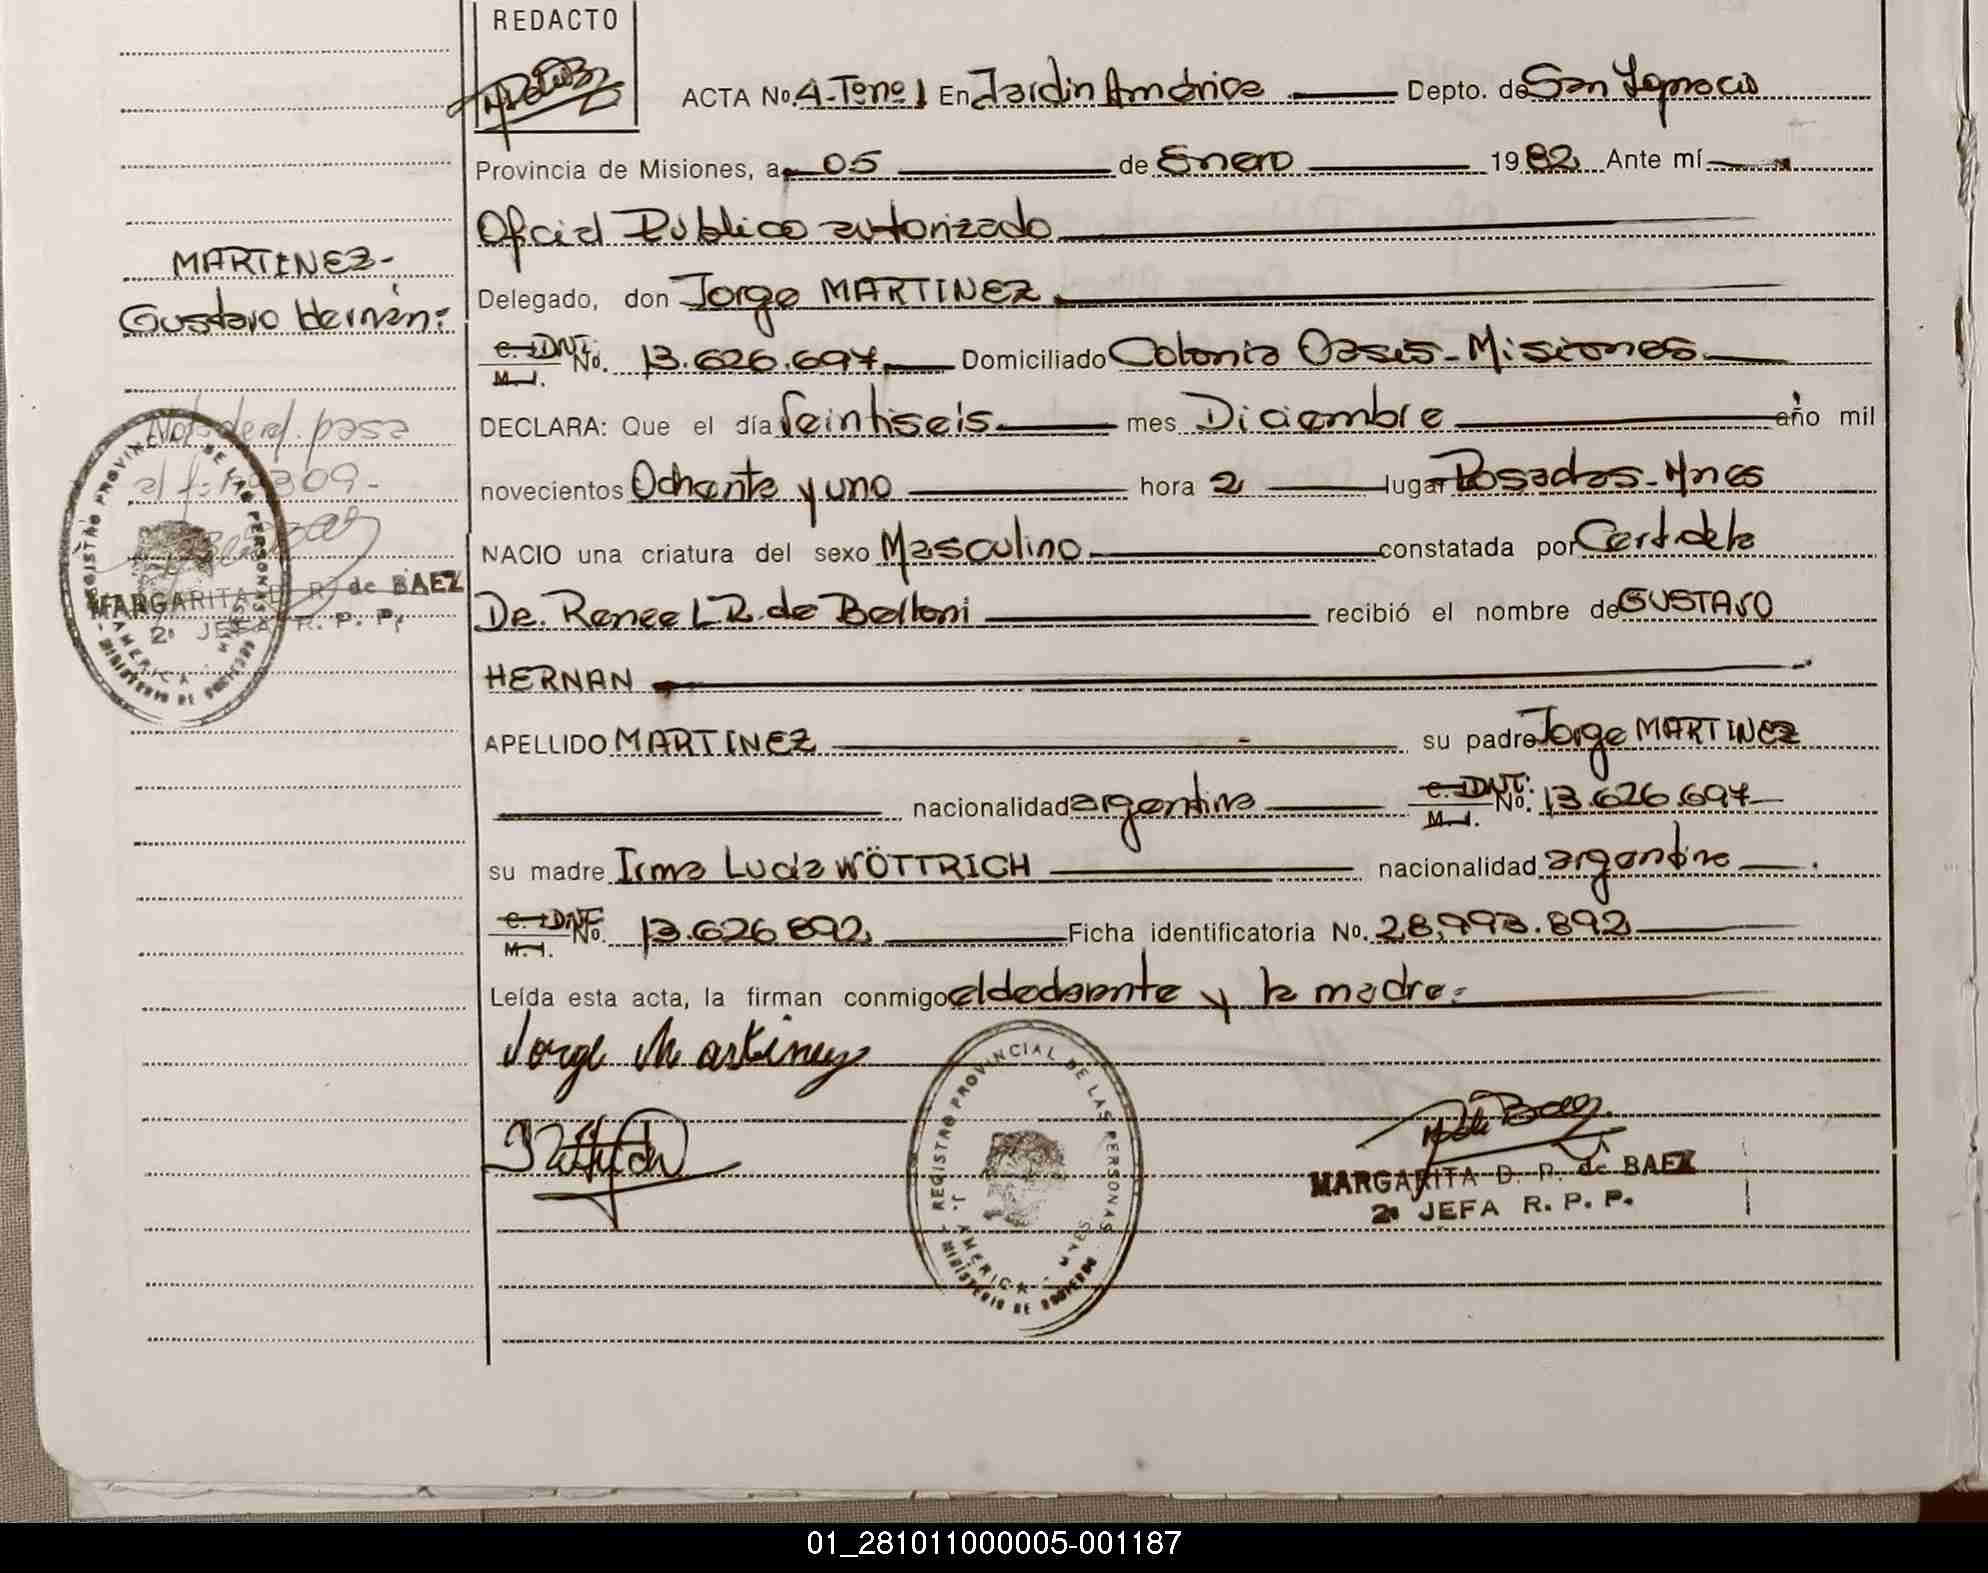 REDACTO
ACTA No. 4-Tomo 1 En Jardin América Depto. de San Ignacio
Provincia de Misiones, a 05 de Enero 1982 Ante mí
Oficial Publico autorizado
MARTINEZ-
Delegado, don Jorge MARTINEZ
Gustavo Hernán:
C. I. DNI. No. 13.626.697 Domiciliado Colonia Oasis-Misiones
M. I.
DECLARA: Que el día Veintiseis mes Diciembre año mil
novecientos Ochenta y uno hora 2 lugar Posadas-Mnes
NACIO una criatura del sexo Masculino constatada por Cert de la
Dr. Renee L R. de Belloni recibió el nombre de GUSTAVO
HERNAN
Nota de ref. pasa
al f: Nº 309-
MARGARITA D. R. de BAEZ
2ª JEFA R. P. P.
APELLIDO MARTINEZ su padre Jorge MARTINEZ
nacionalidad argentina C. I. DNI: No. 13.626.697
M. I.
su madre Irma Lucia WÖTTRICH nacionalidad argentina
C. I. DNI No. 13.626.892 Ficha identificatoria No. 28.993.892
M. I.
Leída esta acta, la firman conmigo el declarante y la madre.
Jorge Martinez
REGISTRO PROVINCIAL DE LAS PERSONAS
J. AMERICA - MNES.
MINISTERIO DE GOBIERNO
MARGARITA D. R. de BAEZ
2ª JEFA R. P. P.
01_281011000005-001187